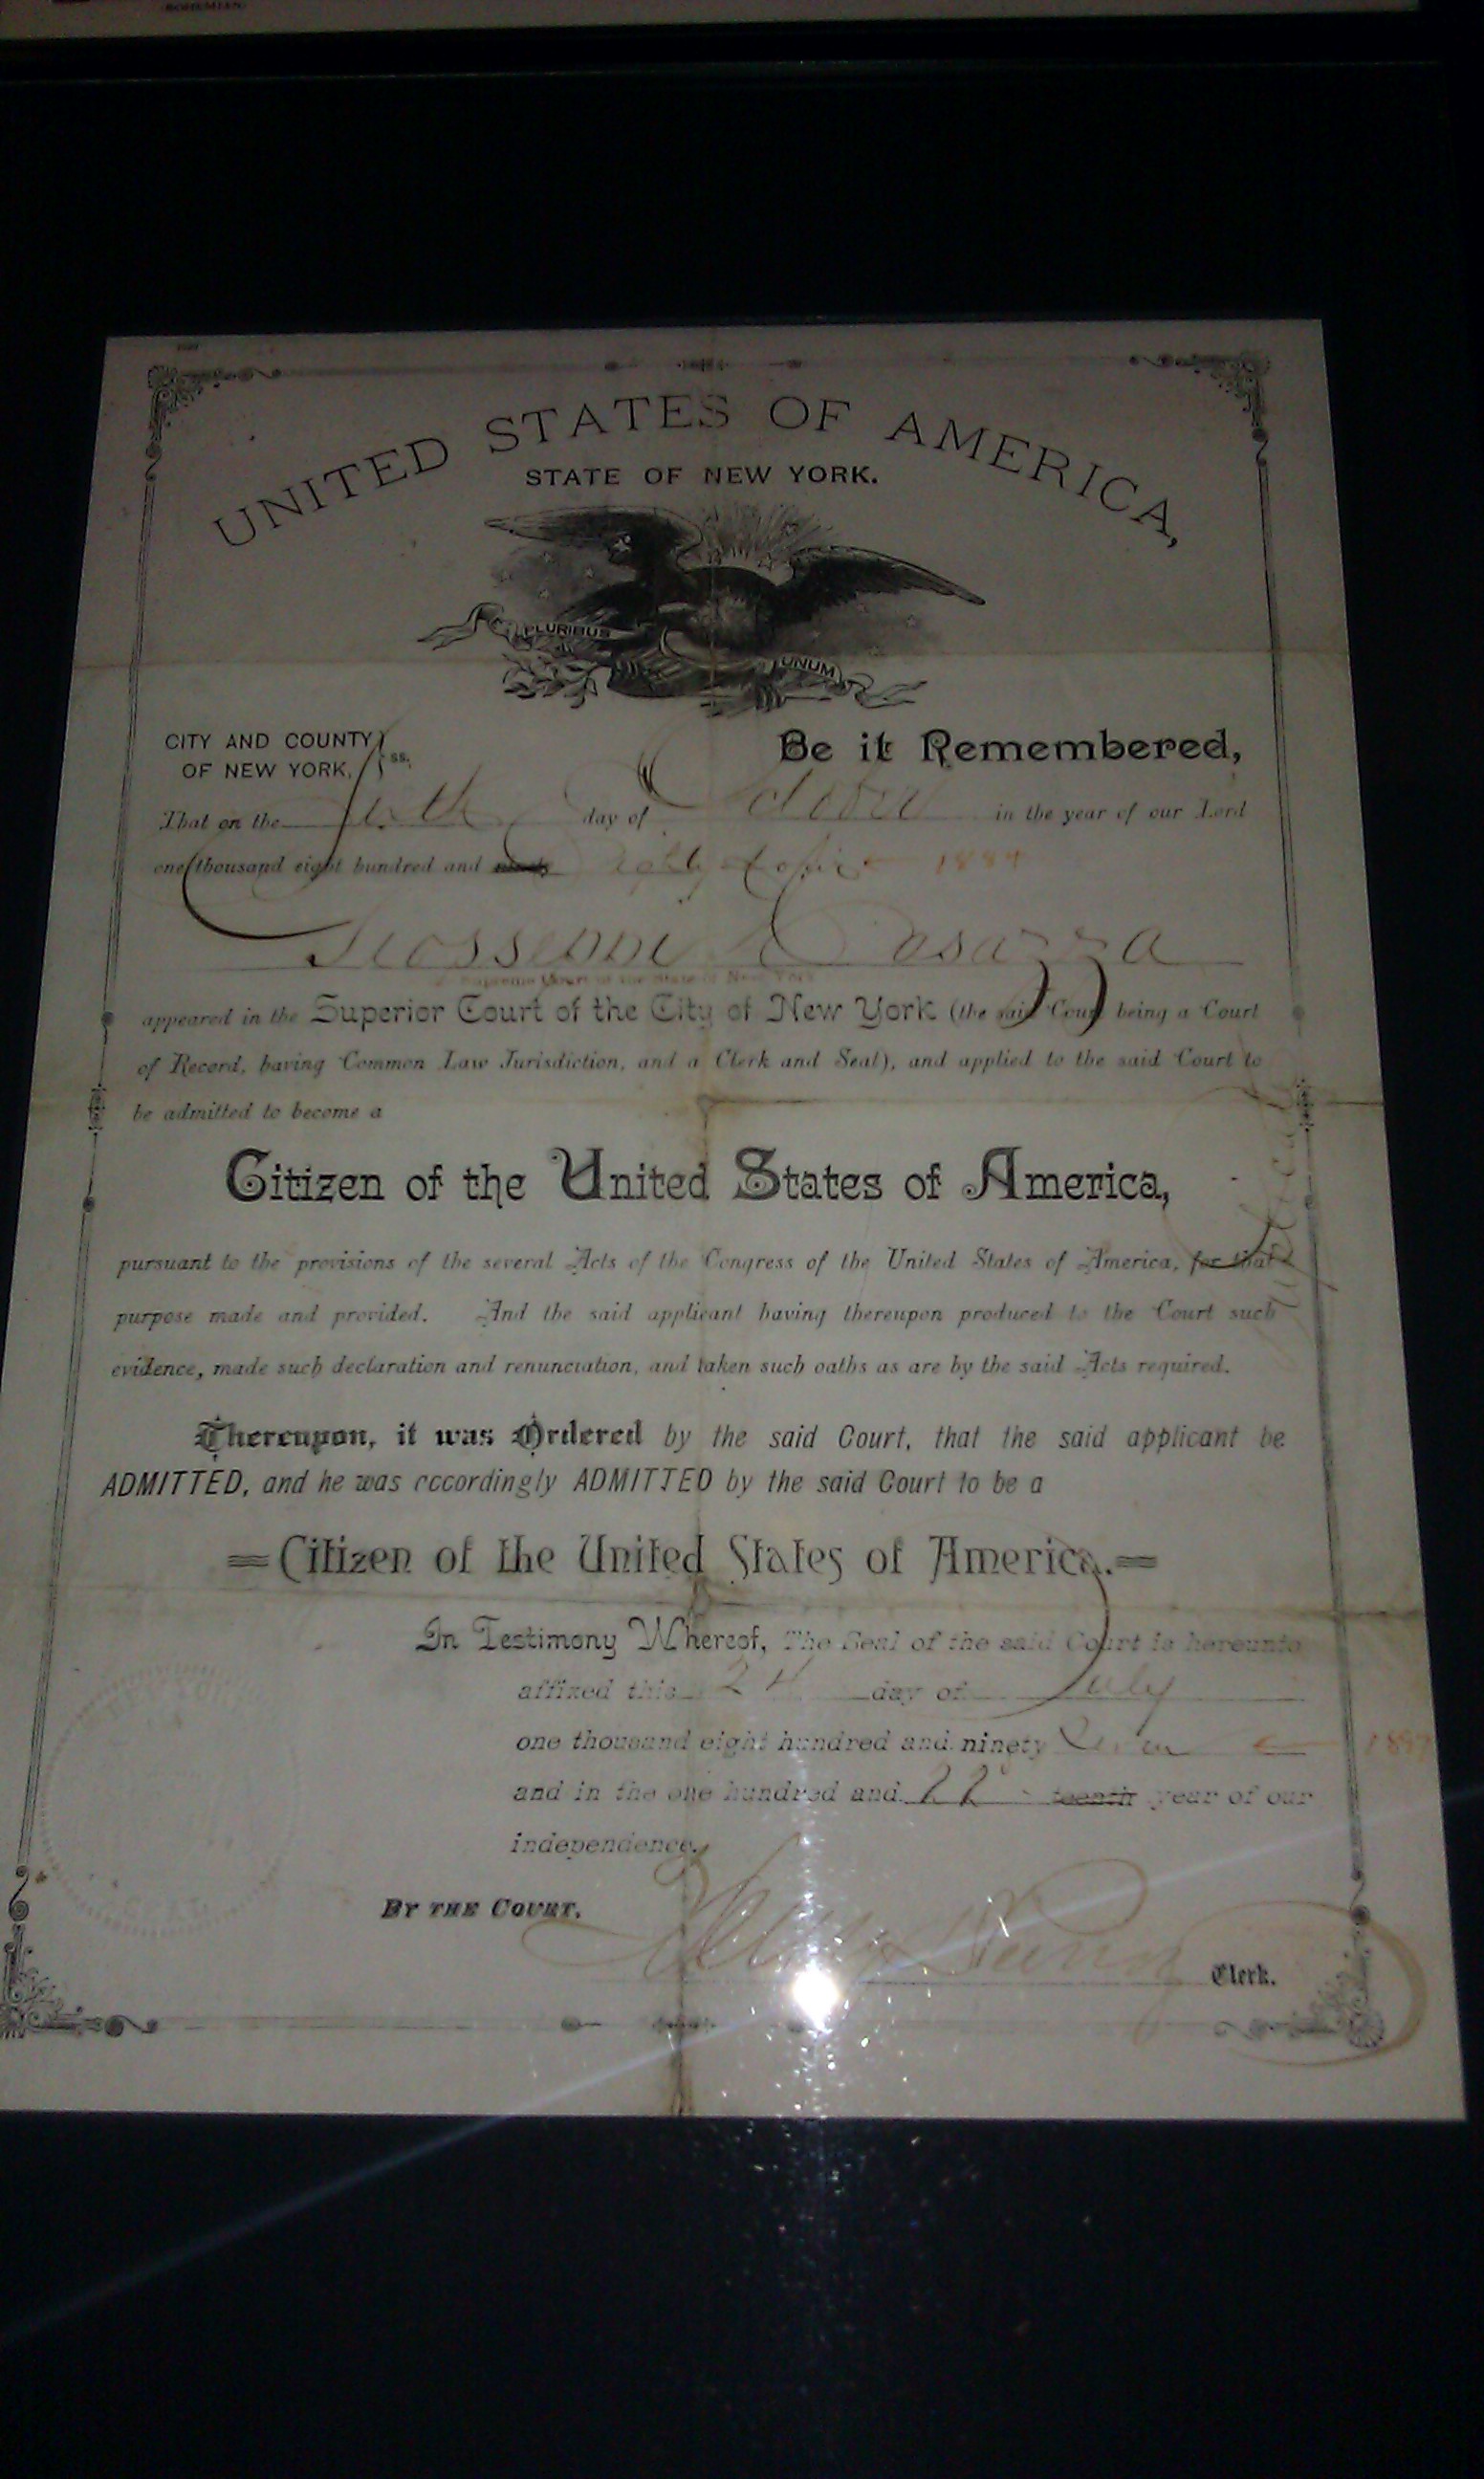 BOHEMIAN
UNITED STATES OF AMERICA,
STATE OF NEW YORK.
E PLURIBUS UNUM
CITY AND COUNTY
OF NEW YORK, ss.
Be it Remembered,
That on the day of in the year of our Lord
one thousand eight hundred and ninety Eighty four 1884
appeared in the Superior Court of the City of New York (the said Court being a Court
of Record, having Common Law Jurisdiction, and a Clerk and Seal), and applied to the said Court to
be admitted to become a
Citizen of the United States of America,
pursuant to the provisions of the several Acts of the Congress of the United States of America, for that
purpose made and provided. And the said applicant having thereupon produced to the Court such
evidence, made such declaration and renunciation, and taken such oaths as are by the said Acts required.
Thereupon, it was Ordered by the said Court, that the said applicant be
ADMITTED, and he was accordingly ADMITTED by the said Court to be a
Citizen of the United States of America.
In Testimony Whereof, The Seal of the said Court is hereunto
affixed this 24 day of July
one thousand eight hundred and ninety Seven 1897
and in the one hundred and 22 teenth year of our
independence.
BY THE COURT,
Clerk.